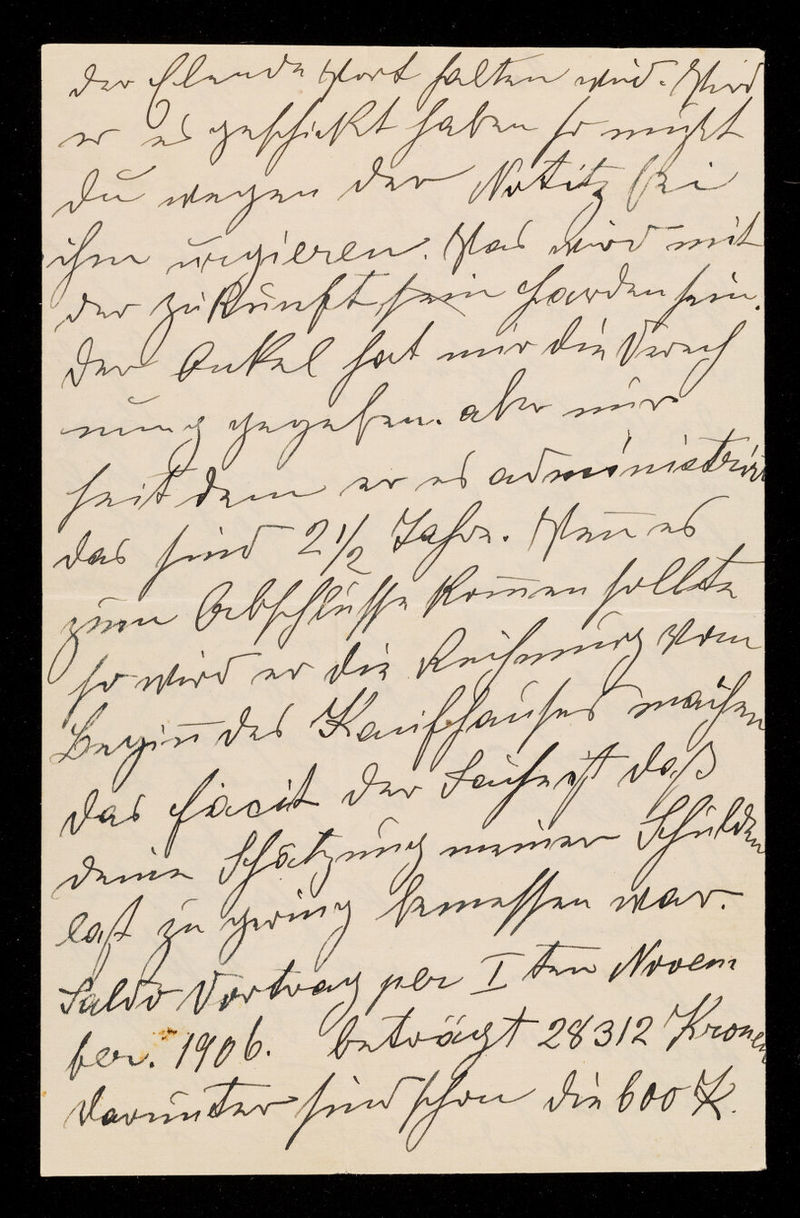 der Elende Wort halten wird. Wird
er es geschickt haben so mußt
du wegen der Notitz bei
ihm urgieren. Was wird mit
der Zukunft sein Harden sein.
Der Onkel hat mir die Verech
nung gegeben. aber nur
seit dem er es administrirt
das sind 2 1/2 Jahre. Wen̅ es
zum Abschlusse kom̅en sollte
so wird er die Rechnung vom
Begin̅ des Kaufhauses machen
das facit der Sache ist daß
deine Schätzung meiner Schulden
last zu gering bemessen war.
Saldo Vortrag per I ten Novem
ber. 1906. beträgt 28312 Kronen
darunter sind schon die 600 K.